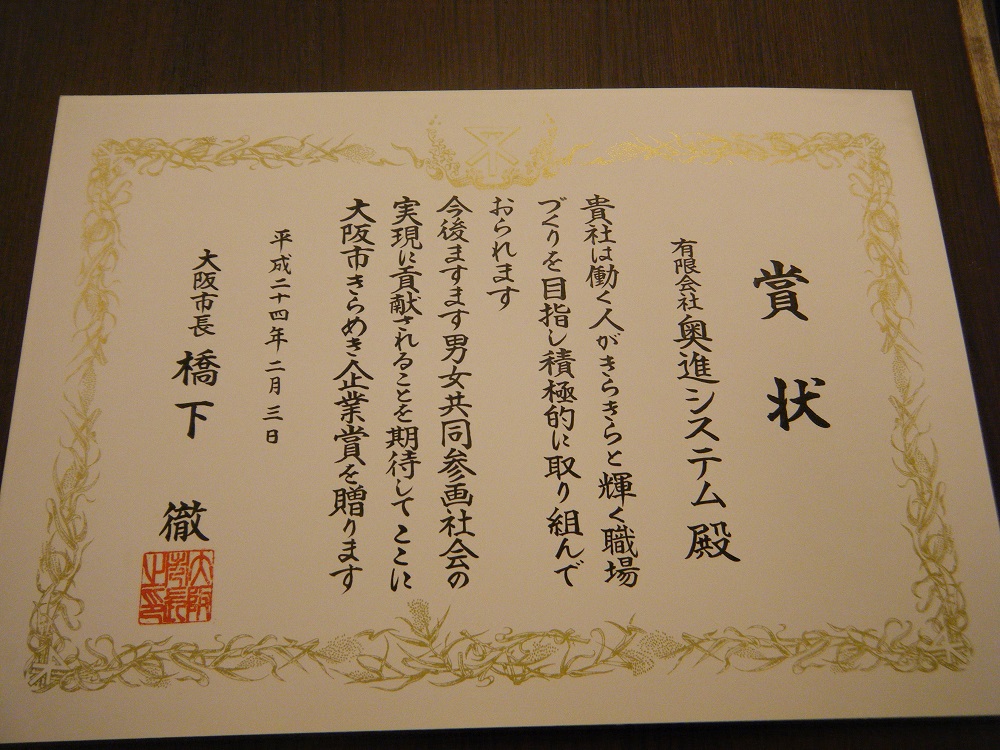 賞状
有限会社奥進システム殿
貴社は働く人がきらきらと輝く職場
づくりを目指し積極的に取り組んで
おられます
今後ますます男女共同参画社会の
実現に貢献されることを期待してここに
大阪市きらめき企業賞を贈ります
平成二十四年二月三日
大阪市長 橋下 徹
大阪市長之印